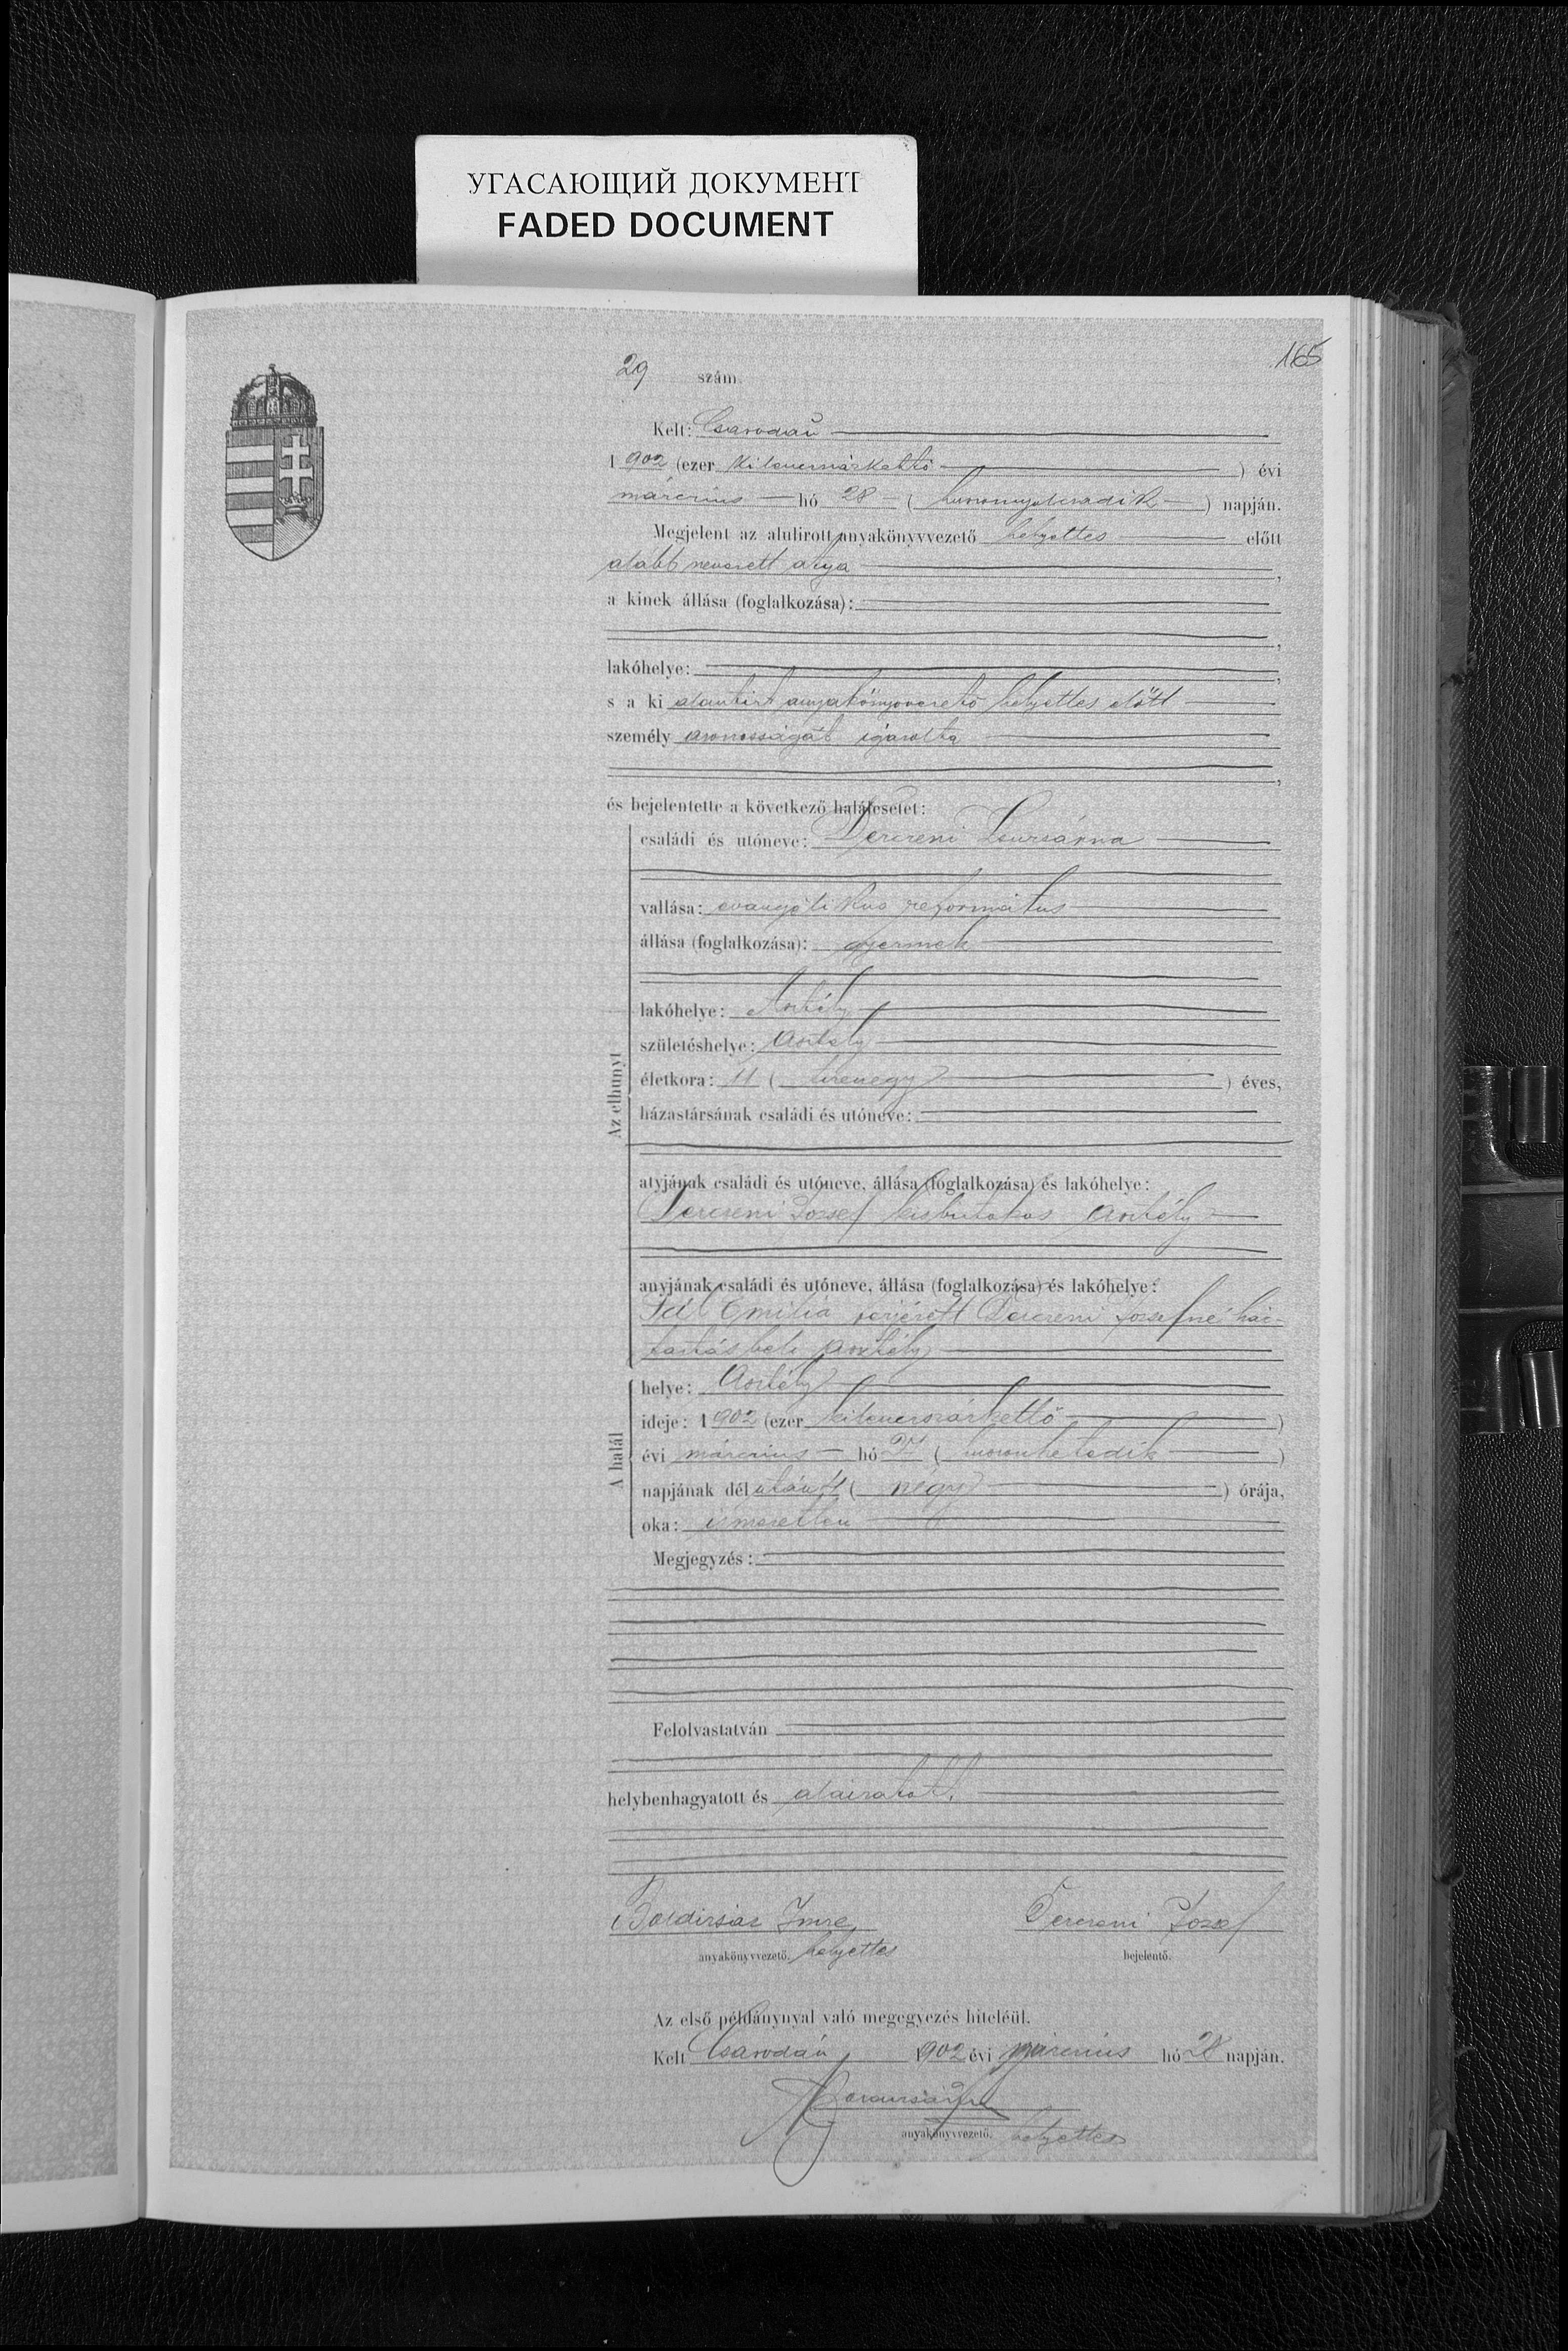 УГАСАЮЩИЙ ДОКУМЕНТ
FADED DOCUMENT
165
29 szám.
Kelt: Csarodán
1902 (ezer kilencszázkettő) évi
március hó 28 (huszonnyolcadik) napján.
Megjelent az alulirott anyakönyvvezető helyettes előtt
alább nevezett atya,
a kinek állása (foglalkozása):
lakóhelye:
s a ki alantirt anyakönyvvezető helyettes előtt
személy azonosságát igazolta
és bejelentette a következő halálesetet:
Az elhunyt
családi és utóneve: Derceni Zsuzsánna
vallása: evangélikus református
állása (foglalkozása): gyermek
lakóhelye: Asztély
születéshelye: Asztély
életkora: 11 (tizenegy) éves,
házastársának családi és utóneve:
atyjának családi és utóneve, állása (foglalkozása) és lakóhelye:
Derceni József kisbirtokos Asztély
anyjának családi és utóneve, állása (foglalkozása) és lakóhelye:
Emilia férjezett Derceni Józsefné ház-
tartásbeli Asztély
A halál
helye: Asztély
ideje: 1902 (ezer kilencszázkettő)
évi március hó 27 (huszonhetedik)
napjának délután 4 (négy) órája,
oka: ismeretlen
Megjegyzés:
Felolvastatván
helybenhagyatott és aláiratott.
Imre Derceni József
anyakönyvvezető. helyettes bejelentő.
Az első példánynyal való megegyezés hiteléül.
Kelt Csarodán 1902 évi március hó 28 napján.
anyakönyvvezető. helyettes